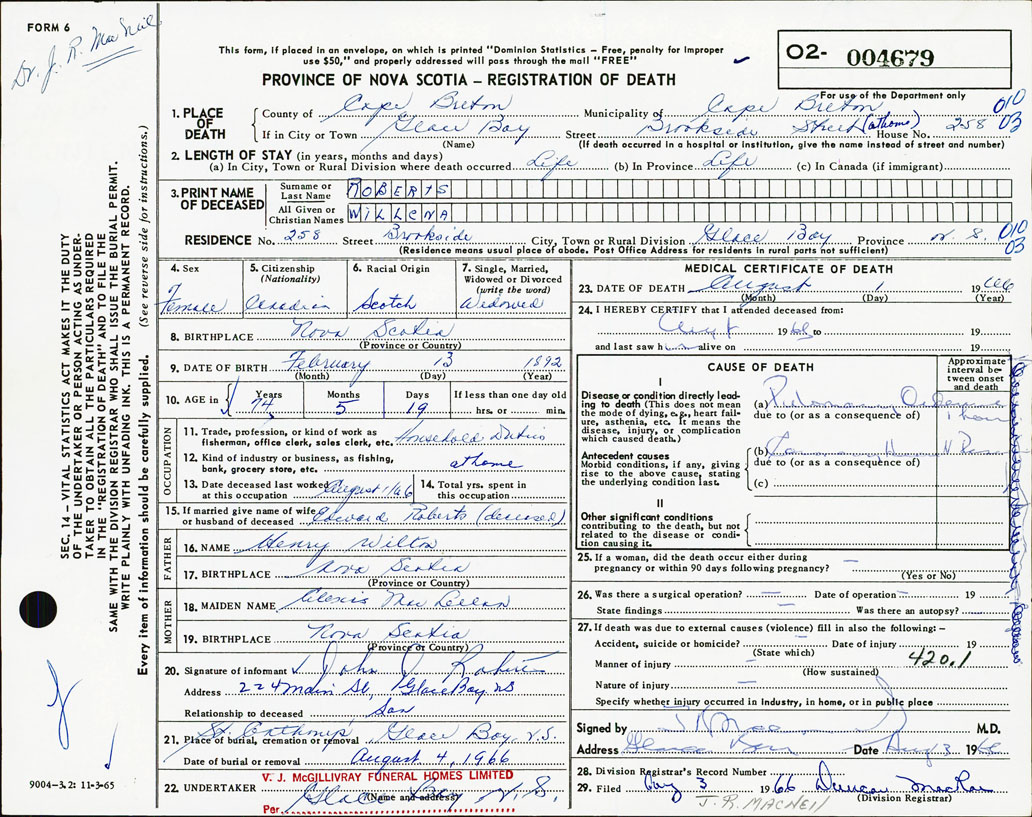 FORM 6
Dr. J. R. MacNeil
This form, if placed in an envelope, on which is printed "Dominion Statistics – Free, penalty for improper
use $50," and properly addressed will pass through the mail "FREE"
PROVINCE OF NOVA SCOTIA – REGISTRATION OF DEATH
02- 004679
For use of the Department only
1. PLACE OF DEATH
County of Cape Breton Municipality of Cape Breton 010
If in City or Town Glace Bay Street Brookside Street (at home) House No. 258 03
(Name) (If death occurred in a hospital or institution, give the name instead of street and number)
2. LENGTH OF STAY (in years, months and days)
(a) In City, Town or Rural Division where death occurred Life (b) In Province Life (c) In Canada (if immigrant)
3. PRINT NAME OF DECEASED
Surname or Last Name ROBERTS
All Given or Christian Names WILLENA
RESIDENCE No. 258 Street Brookside City, Town or Rural Division Glace Bay Province N. S. 010 03
(Residence means usual place of abode. Post Office Address for residents in rural parts not sufficient)
4. Sex Female
5. Citizenship (Nationality) Canadian
6. Racial Origin Scotch
7. Single, Married, Widowed or Divorced (write the word) Widowed
8. BIRTHPLACE Nova Scotia
(Province or Country)
9. DATE OF BIRTH February 13 1892
(Month) (Day) (Year)
10. AGE in Years 74 Months 5 Days 19 If less than one day old
hrs. or min.
OCCUPATION
11. Trade, profession, or kind of work as
fisherman, office clerk, sales clerk, etc. Household Duties
12. Kind of industry or business, as fishing,
bank, grocery store, etc. at home
13. Date deceased last worked at this occupation August 1/66
14. Total yrs. spent in this occupation
15. If married give name of wife
or husband of deceased Edward Roberts (deceased)
FATHER
16. NAME Henry Wilton
17. BIRTHPLACE Nova Scotia
(Province or Country)
MOTHER
18. MAIDEN NAME Alexis MacLellan
19. BIRTHPLACE Nova Scotia
(Province or Country)
20. Signature of informant John J. Roberts
Address 224 Main St, Glace Bay, NS
Relationship to deceased Son
21. Place of burial, cremation or removal St. Anthony's Glace Bay N.S.
Date of burial or removal August 4, 1966
22. UNDERTAKER V. J. McGILLIVRAY FUNERAL HOMES LIMITED
(Name and address)
Per Glace Bay N. S.
MEDICAL CERTIFICATE OF DEATH
23. DATE OF DEATH August 1 1966
(Month) (Day) (Year)
24. I HEREBY CERTIFY that I attended deceased from:
Aug 1 1966 to 19
and last saw h alive on 19
CAUSE OF DEATH
Approximate interval between onset and death
I
Disease or condition directly leading to death (This does not mean
the mode of dying, e.g., heart failure, asthenia, etc. It means the
disease, injury, or complication
which caused death.)
(a) Pulmonary Oedema
due to (or as a consequence of) 1 hour
Antecedent causes
Morbid conditions, if any, giving
rise to the above cause, stating
the underlying condition last.
(b)
due to (or as a consequence of)
(c)
II
Other significant conditions
contributing to the death, but not
related to the disease or condition causing it.
25. If a woman, did the death occur either during
pregnancy or within 90 days following pregnancy? —
(Yes or No)
26. Was there a surgical operation? — Date of operation — 19
State findings — Was there an autopsy? —
27. If death was due to external causes (violence) fill in also the following: –
Accident, suicide or homicide? — Date of injury 19
(State which) 420.1
Manner of injury —
(How sustained)
Nature of injury —
Specify whether injury occurred in Industry, in home, or in public place
Signed by M.D.
Address Glace Bay Date Aug 3 1966
28. Division Registrar's Record Number
29. Filed Aug 3 1966 Duncan MacRae
(Division Registrar)
J. R. MACNEIL
SEC. 14 – VITAL STATISTICS ACT MAKES IT THE DUTY
OF THE UNDERTAKER OR PERSON ACTING AS UNDER-
TAKER TO OBTAIN ALL THE PARTICULARS REQUIRED
IN THE "REGISTRATION OF DEATH" AND TO FILE THE
SAME WITH THE DIVISION REGISTRAR WHO SHALL ISSUE THE BURIAL PERMIT.
WRITE PLAINLY WITH UNFADING INK. THIS IS A PERMANENT RECORD.
Every item of information should be carefully supplied. (See reverse side for instructions.)
9004–3.2: 11-3-65